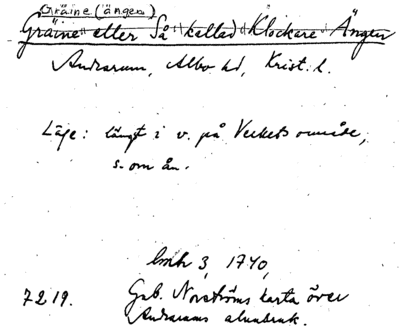 Gräine (ängen)
Gräine eller Så kallad Klockare Ängen
Andrarum, Albo hd, Krist. l.
Läge: längst i v. på Verkets område,
s. om ån.
3, 1740,
7219. Gab. Norströms karta över
Andrarums alunbruk.